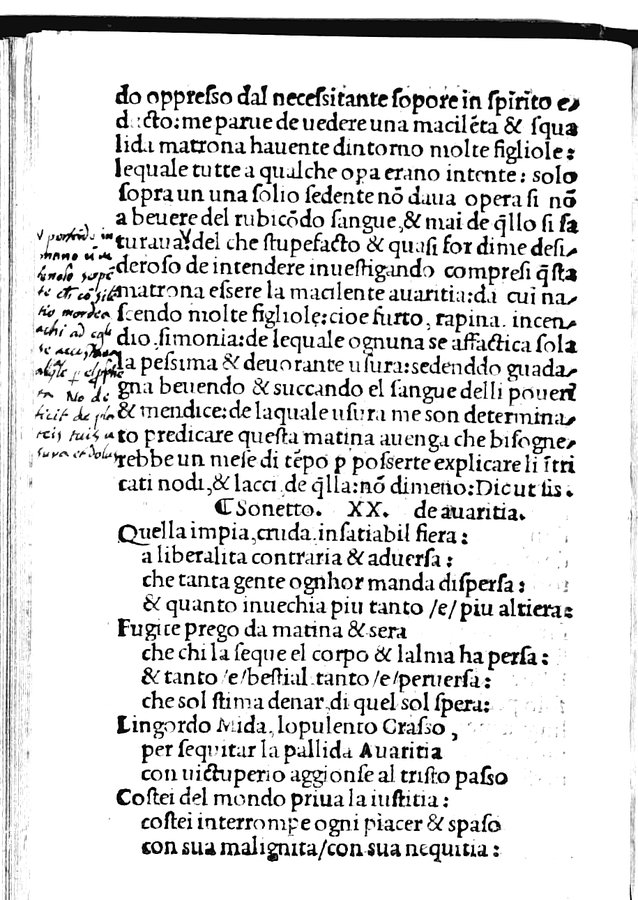 do oppresso dal necessitante sopore in spīrito e/
ducto: me parue de uedere una macilēta & squa
lida matrona hauente dintorno molte figliole:
lequale tutte a qualche opa erano intente: solo
sopra un una solio sedente nō daua opera si nō
a beuere del rubicōdo sangue, & mai de q̄llo si sa
turaua? del che stupefacto & quasi for dime desi/
deroso de intendere inuestigando compresi q̄sta
matrona essere la macilente auaritia: da cui na/
scendo molte figliole: cioe furto, rapina. incen/
dio, simonia: de lequale ognuna se affactica sola
la pessima & deuorante usura: sedenddo guada/
gna beuendo & succando el sangue delli poueri
& mendice: de laquale usura me son determina/
to predicare questa matina auenga che bisogne/
rebbe un mese di tēpo p posserte explicare li ītri
cati nodi, & lacci de q̄lla: nō dimeno: Dicut iis.
¶ Sonetto. XX. de auaritia.
Quella impia, cruda insatiabil fiera:
a liberalita contraria & aduersa:
che tanta gente ognhor manda dispersa:
& quanto inuechia piu tanto /e/ piu altiera:
Fugite prego da matina & sera
che chi la seque el corpo & lalma ha persa:
& tanto /e/ bestial tanto /e/ peruersa:
che sol stima denar, di quel sol spera:
Lingordo Mida, lopulento Crasso,
per sequitar la pallida Auaritia
con uictuperio aggionse al tristo passo
Costei del mondo priua la iustitia:
costei interrompe ogni piacer & spaso
con sua malignita/con sua nequitia: